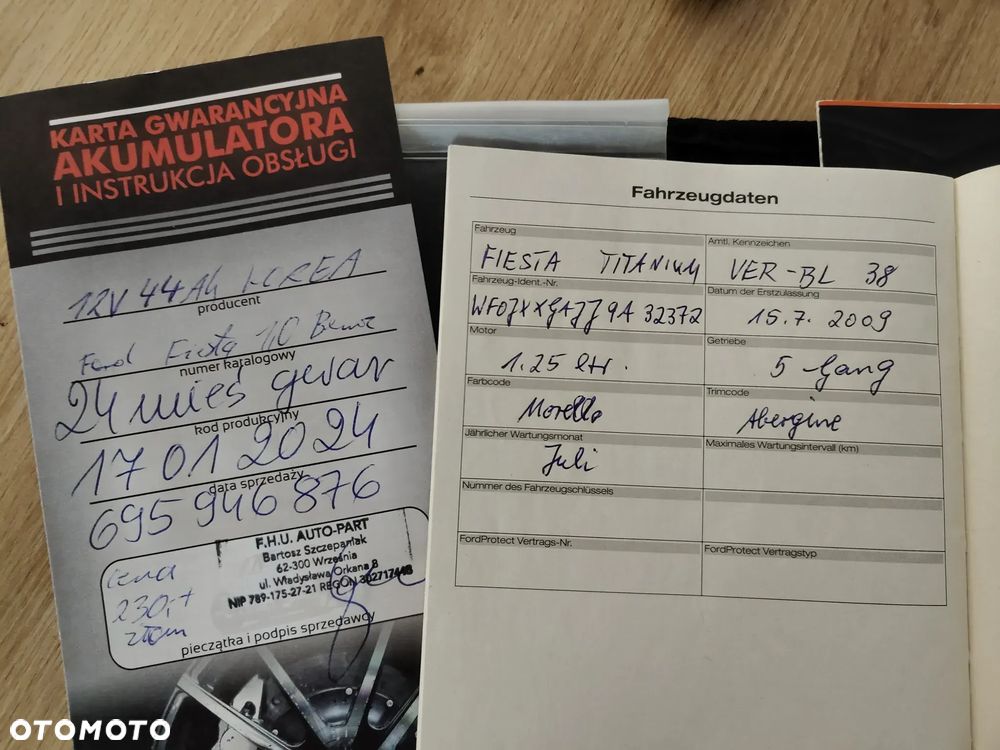 KARTA GWARANCYJNA
AKUMULATORA
I INSTRUKCJA OBSŁUGI
12V 44Ah KOREA
producent
Ford Fiesta 1,0 Benz
numer katalogowy
24 mieś gwar
kod produkcyjny
17 01 2024
data sprzedaży
695 946 876
F.H.U. AUTO-PART
Bartosz Szczepaniak
62-300 Września
ul. Władysława Orkana 8
NIP 789-175-27-21 REGON 302717448
cena
230,+
złom
pieczątka i podpis sprzedawcy
Fahrzeugdaten
Fahrzeug
FIESTA TITANIUM
Amtl. Kennzeichen
VER-BL 38
Fahrzeug-Ident.-Nr.
WF0JXXGAJJ9A32372
Datum der Erstzulassung
15.7.2009
Motor
1.25 ltr.
Getriebe
5 Gang
Farbcode
Morello
Trimcode
Abergine
Jährlicher Wartungsmonat
Juli
Maximales Wartungsintervall (km)
Nummer des Fahrzeugschlüssels
FordProtect Vertrags-Nr.
FordProtect Vertragstyp
OTOMOTO